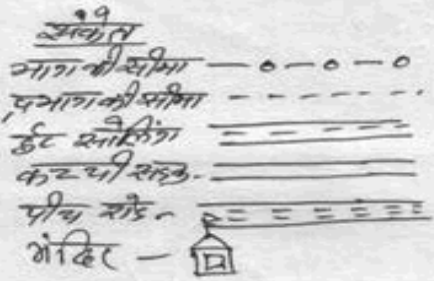 संकेत
भाग की सीमा
प्रभाग की सीमा
ईट सोलिंग
कच्ची सड़क
पीच रोड
मंदिर